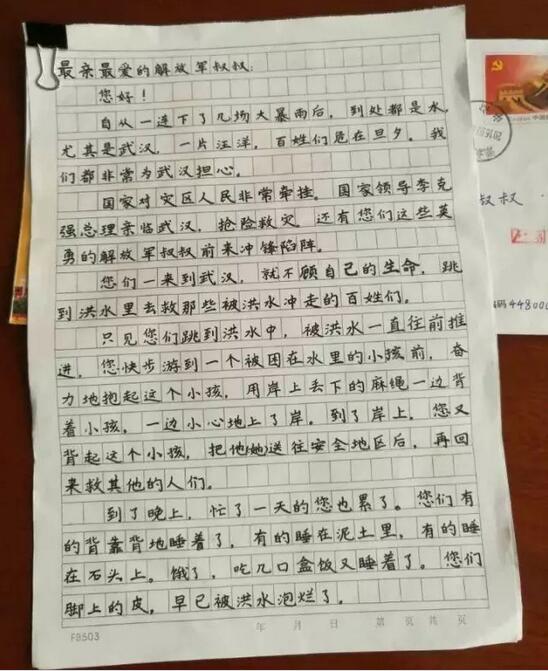 最亲最爱的解放军叔叔:
您好!
自从一连下了几场大暴雨后，到处都是水，
尤其是武汉，一片汪洋，百姓们危在旦夕。我
们都非常为武汉担心。
国家对灾区人民非常牵挂。国家领导李克
强总理亲临武汉，抢险救灾，还有您们这些英
勇的解放军叔叔前来冲锋陷阵。
您们一来到武汉，就不顾自己的生命，跳
到洪水里去救那些被洪水冲走的百姓们。
只见您们跳到洪水中，被洪水一直往前推
进，您快步游到一个被困在水里的小孩前，奋
力地抱起这个小孩，用岸上丢下的麻绳一边背
着小孩，一边小心地上了岸。到了岸上，您又
背起这个小孩，把他(她)送往安全地区后，再回
来救其他的人们。
到了晚上，忙了一天的您也累了。您们有
的背靠背地睡着了，有的睡在泥土里，有的睡
在石头上。饿了，吃几口盒饭又睡着了。您们
脚上的皮，早已被洪水泡烂了。
FB503
年 月 日 第 页 共 页
叔叔
码448000